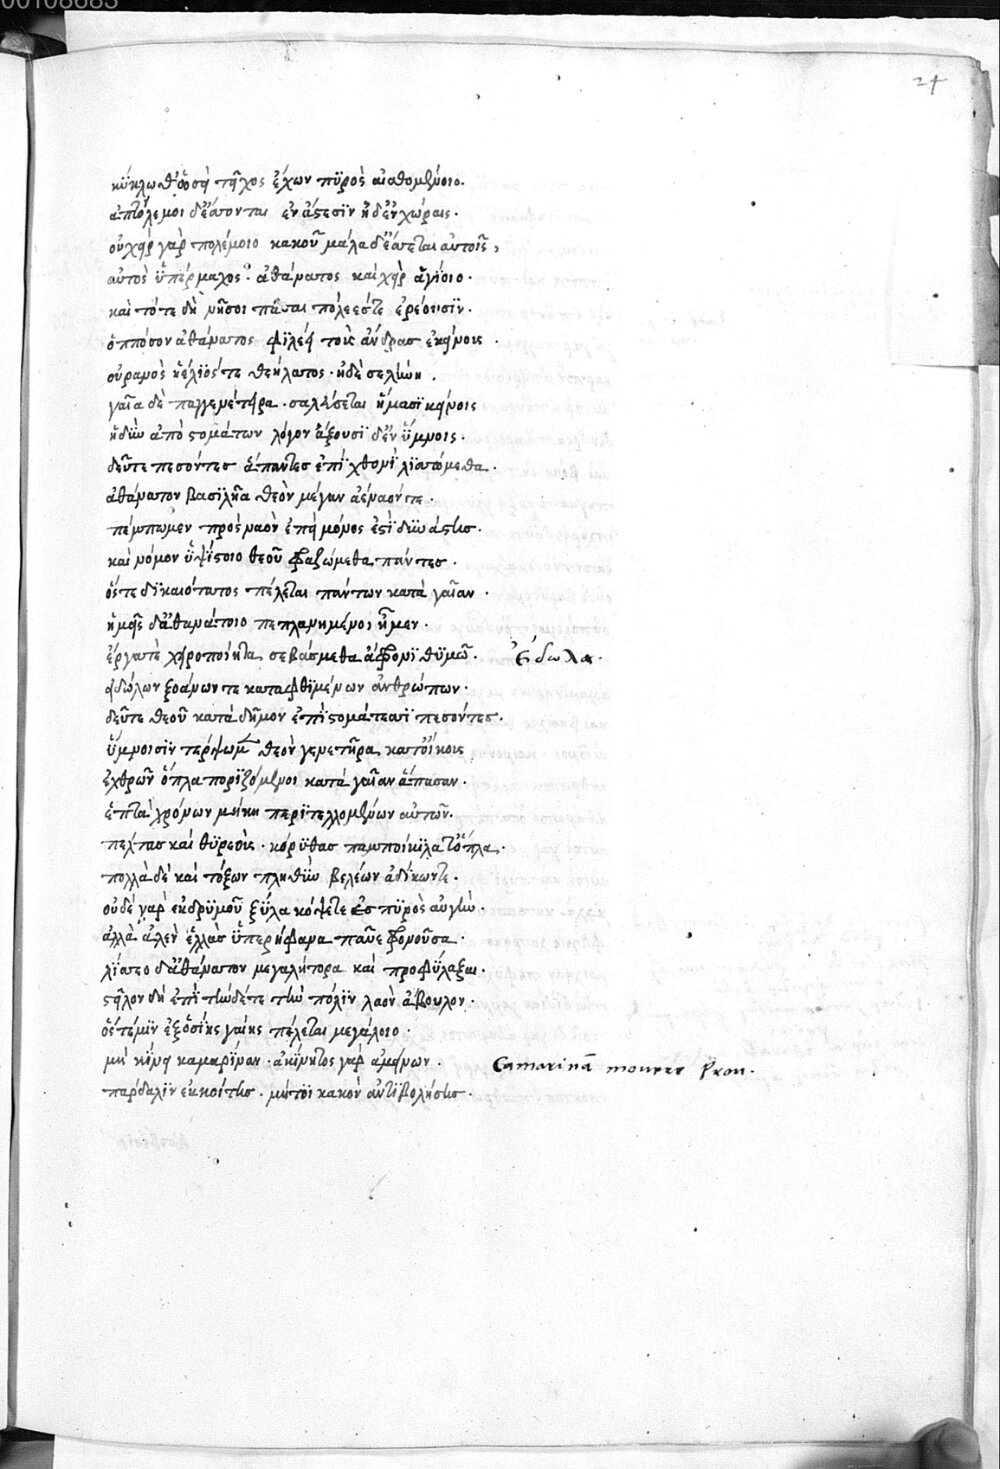 00108683
24
κύκλωθεν ὡσεὶ τεῖχος ἔχων πῦρος αἰθομένοιο.
ἀπτόλεμοι δ' ἔσονται ἐν ἄστεσιν ἠδ' ἐν χώραις.
οὐ χεὶρ γὰρ πολέμοιο κακοῦ μάλα δ' ἔσσεται αὐτοῖς,
αὐτὸς ὑπέρμαχος ἀθάνατος καὶ χεὶρ ἁγίοιο.
καὶ τότε δὴ νῆσοι πᾶσαι πόλεές τε ἐρέουσιν.
ὁππόσον ἀθάνατος φιλέει τοὺς ἄνδρας ἐκείνους.
οὐρανὸς ἠέλιός τε θεήλατος. ἠδὲ σελήνη.
γαῖα δὲ παγγενέτειρα. σαλεύσεται ἤμασι κείνοις
ἡδὺν ἀπὸ στομάτων λόγον ἄξουσι δ' ἐν ὕμνοις.
δεῦτε πεσόντες ἅπαντες ἐπὶ χθονὶ λισσώμεθα.
ἀθάνατον βασιλῆα θεὸν μέγαν ἀέναόν τε.
πέμπωμεν πρὸς ναὸν ἐπεὶ μόνος ἐστὶ δυνάστης.
καὶ νόμον ὑψίστοιο θεοῦ φραζώμεθα πάντες.
ὅστε δικαιότατος πέλεται πάντων κατὰ γαῖαν.
ἡμεῖς δ' ἀθανάτοιο πεπλανημένοι ἦμεν.
ἔργα τε χειροποίητα σεβάσμεθα ἄφρονι θυμῷ. Εἴδωλα.
εἰδώλων ξοάνων τε καταφθιμένων ἀνθρώπων.
δεῦτε θεοῦ κατὰ δῆμον ἐπὶ στομάτεσσι πεσόντες.
ὕμνοισιν τέρψωμεν θεὸν γενετῆρα κατ' οἴκους
ἐχθρῶν ὅπλα ποριζόμενοι κατὰ γαῖαν ἅπασαν.
ἑπτὰ χρόνων μήκη περιτελλομένων αὐτῶν.
πέλτας καὶ θυρεοὺς. κόρυθας παμποίκιλα θ' ὅπλα.
πολλὰ δὲ καὶ τόξων πληθὺν βελέων ἀδίκων τε.
οὐδὲ γὰρ ἐκ δρυμοῦ ξύλα κόψετε ἐς πυρὸς αὐγὴν.
ἀλλὰ ἀλεὴν ἑλλὰς ὑπερήφανα παῦε φρονοῦσα.
λίσσεο δ' ἀθάνατον μεγαλήτορα καὶ προφύλαξαι.
στεῖλον δὴ ἐπὶ τήνδέ τε τὴν πόλιν λαὸν ἄβουλον.
ὅς τέ μιν ἐξ ὁσίης γαίης πέλεται μεγάλοιο.
μὴ κίνει καμαρίναν. ἀκίνητος γὰρ ἀμείνων. Camarinā mouere Prou.
πάρδαλιν ἐκ κοίτης. μή τοι κακὸν ἀντιβολήσῃς.